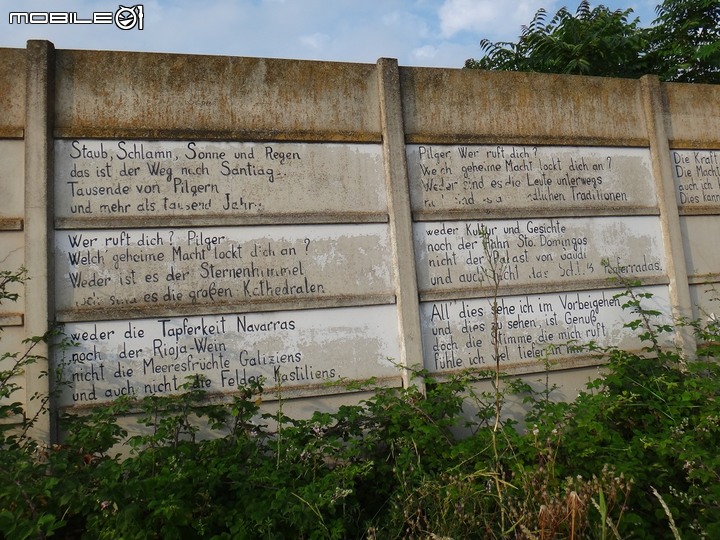 MOBILE01
Staub, Schlamn, Sonne und Regen
das ist der Weg nach Santiag
Tausende von Pilgern
und mehr als tausend Jahr
Wer ruft dich? Pilger
Welch geheime Macht lockt dich an ?
Weder ist es der Sternenhimmel
es die großen Kathedralen
weder die Tapferkeit Navarras
noch der Rioja-Wein
nicht die Meeresfrüchte Galiziens
und auch nicht die Felder Kastiliens.
Pilger Wer ruft dich ?
Welch geheime Macht lockt dich an ?
Weder sind es die Leute unterwegs
ländlichen Traditionen
weder Kultur und Gesichte
noch der Hahn Sto. Domingos
nicht der Palast von Gaudi
und auch nicht das Ponferradas.
All' dies sehe ich im Vorbeigehen
und dies zu sehen, ist Genuß
doch die Stimme, die mich ruft
fühle ich viel tiefer in
Die Kraft
Die Macht
auch ich
Dies kann